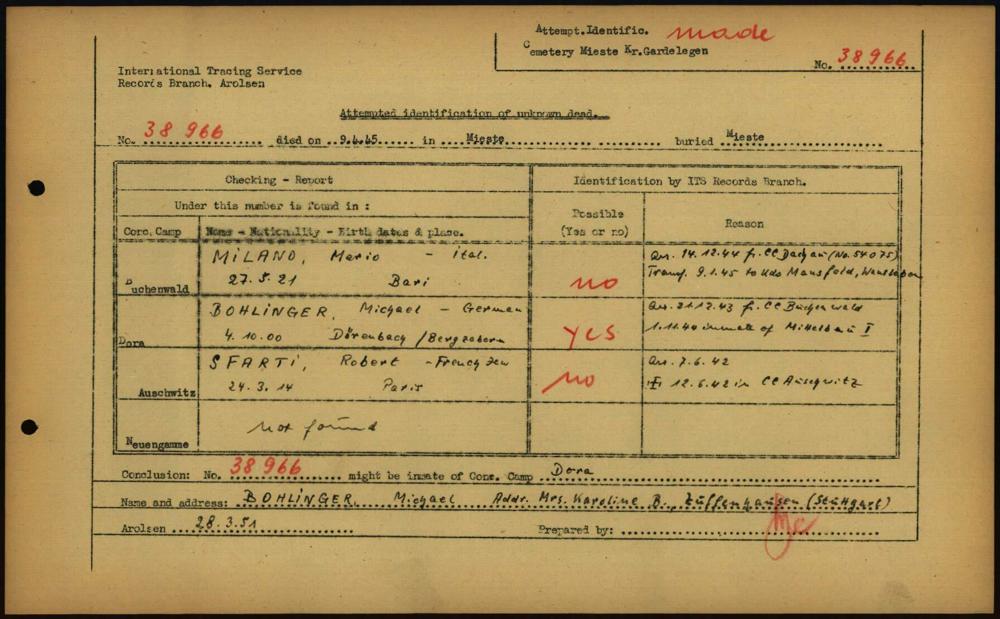 Attempt.Identific. made
Cemetery Mieste Kr.Gardelegen
No. 38966
International Tracing Service
Records Branch. Arolsen
Attempted identification of unknown dead.
No. 38 966 died on 9.4.45 in Mieste buried Mieste
Checking - Report
Identification by ITS Records Branch.
Under this number is found in :
Possible (Yes or no)
Reason
Conc. Camp
Name - Nationality - Birth dates & place.
Buchenwald
MILANO, Mario - ital.
27.5.21 Bari
no
Arr. 14.12.44 fr. CC Dachau (No. 54075)
Transf. 9.1.45 to Kdo Mansfeld,
Dora
BOHLINGER, Michael - German
4.10.00 Dörenbach / Bergzabern
yes
Arr. 21.12.43 fr. CC Buchenwald
1.11.44 inmate of Mittelbau I
Auschwitz
SFARTI, Robert - French Jew
24.3.14 Paris
no
Arr. 7.6.42
12.6.42 in CC Auschwitz
Neuengamme
Not found
Conclusion: No. 38 966 might be inmate of Conc. Camp Dora
Name and address: BOHLINGER, Michael Addr. Mrs. Karoline B., Zuffenhausen (Stuttgart)
Arolsen 28.3.51 Prepared by: